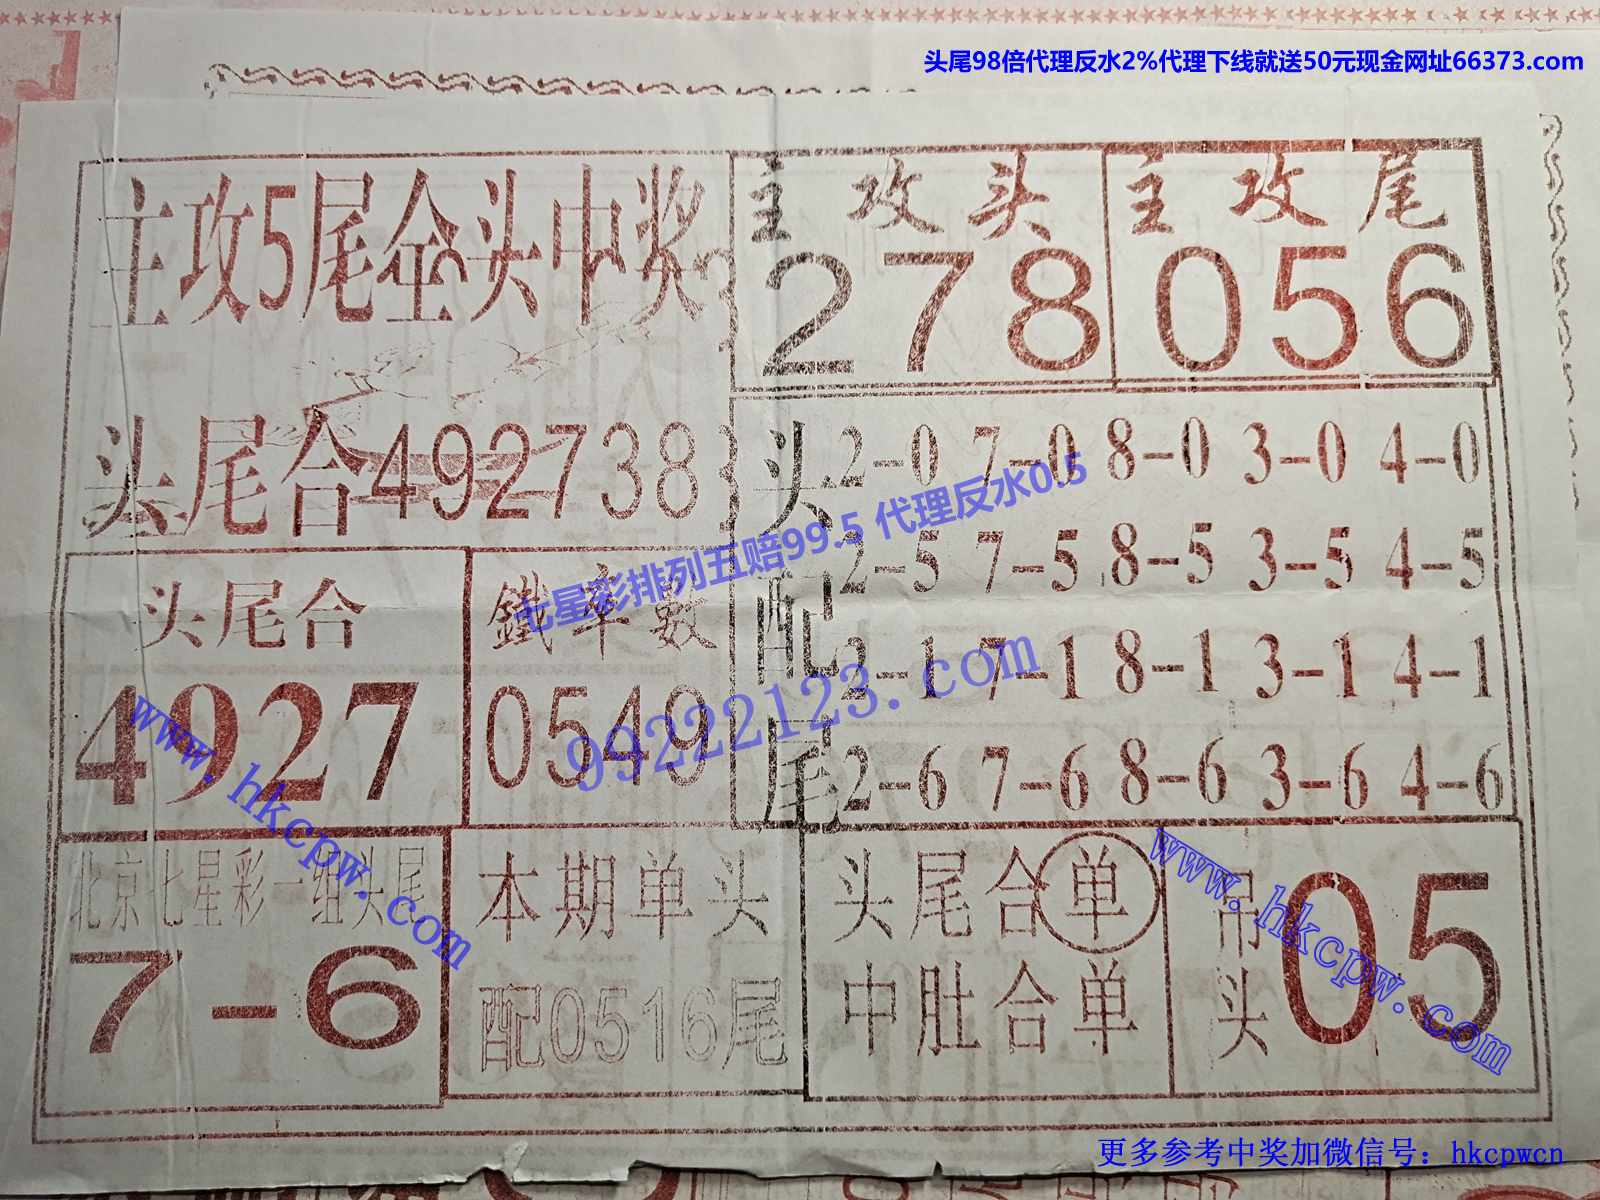 头尾98倍代理反水2%代理下线就送50元现金网址66373.com
主攻5尾全头中奖
主攻头
278
主攻尾
056
头尾合492738
头尾合
4927
鐵率數
0549
头配尾
2-0 7-0 8-0 3-0 4-0
2-5 7-5 8-5 3-5 4-5
2-1 7-1 8-1 3-1 4-1
2-6 7-6 8-6 3-6 4-6
七星彩排列五赔99.5 代理反水0.5
99222123.com
www.hkcpw.com
北京七星彩一组头尾
7-6
本期单头
配0516尾
头尾合单
中肚合单
吊头
05
www.hkcpw.com
更多参考中奖加微信号：hkcpwcn